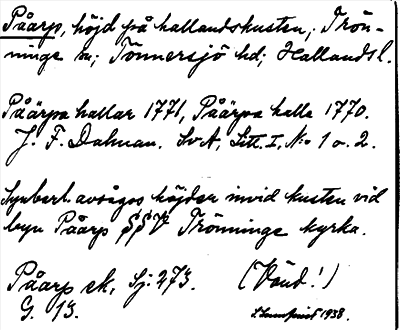 Påarp, höjd på hallandskusten, Trön-
ninge sn; Tönnersjö hd; Hallands l.
Påärpa hallar 1771, Påärpa halla 1770.
J. F. Dahman. SvA, Litt. I, No 1 o. 2.
Synberl. avsågos höjder invid kusten vid
byn Påarp SSV Trönninge kyrka.
Påarp ek, Sj. 273. (Vänd!)
G. 13. 1938.